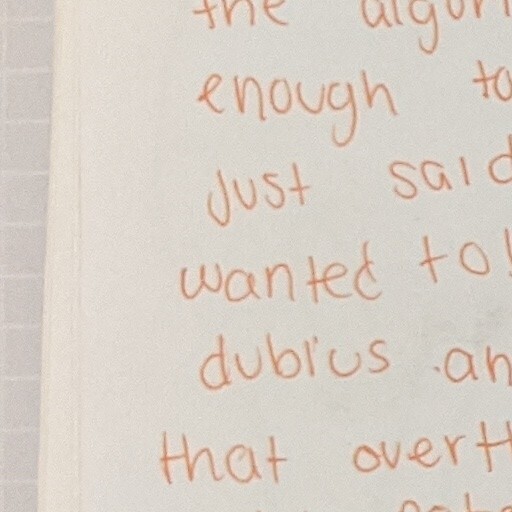 the
enough to
just said
wanted to!
dubius an
that overt